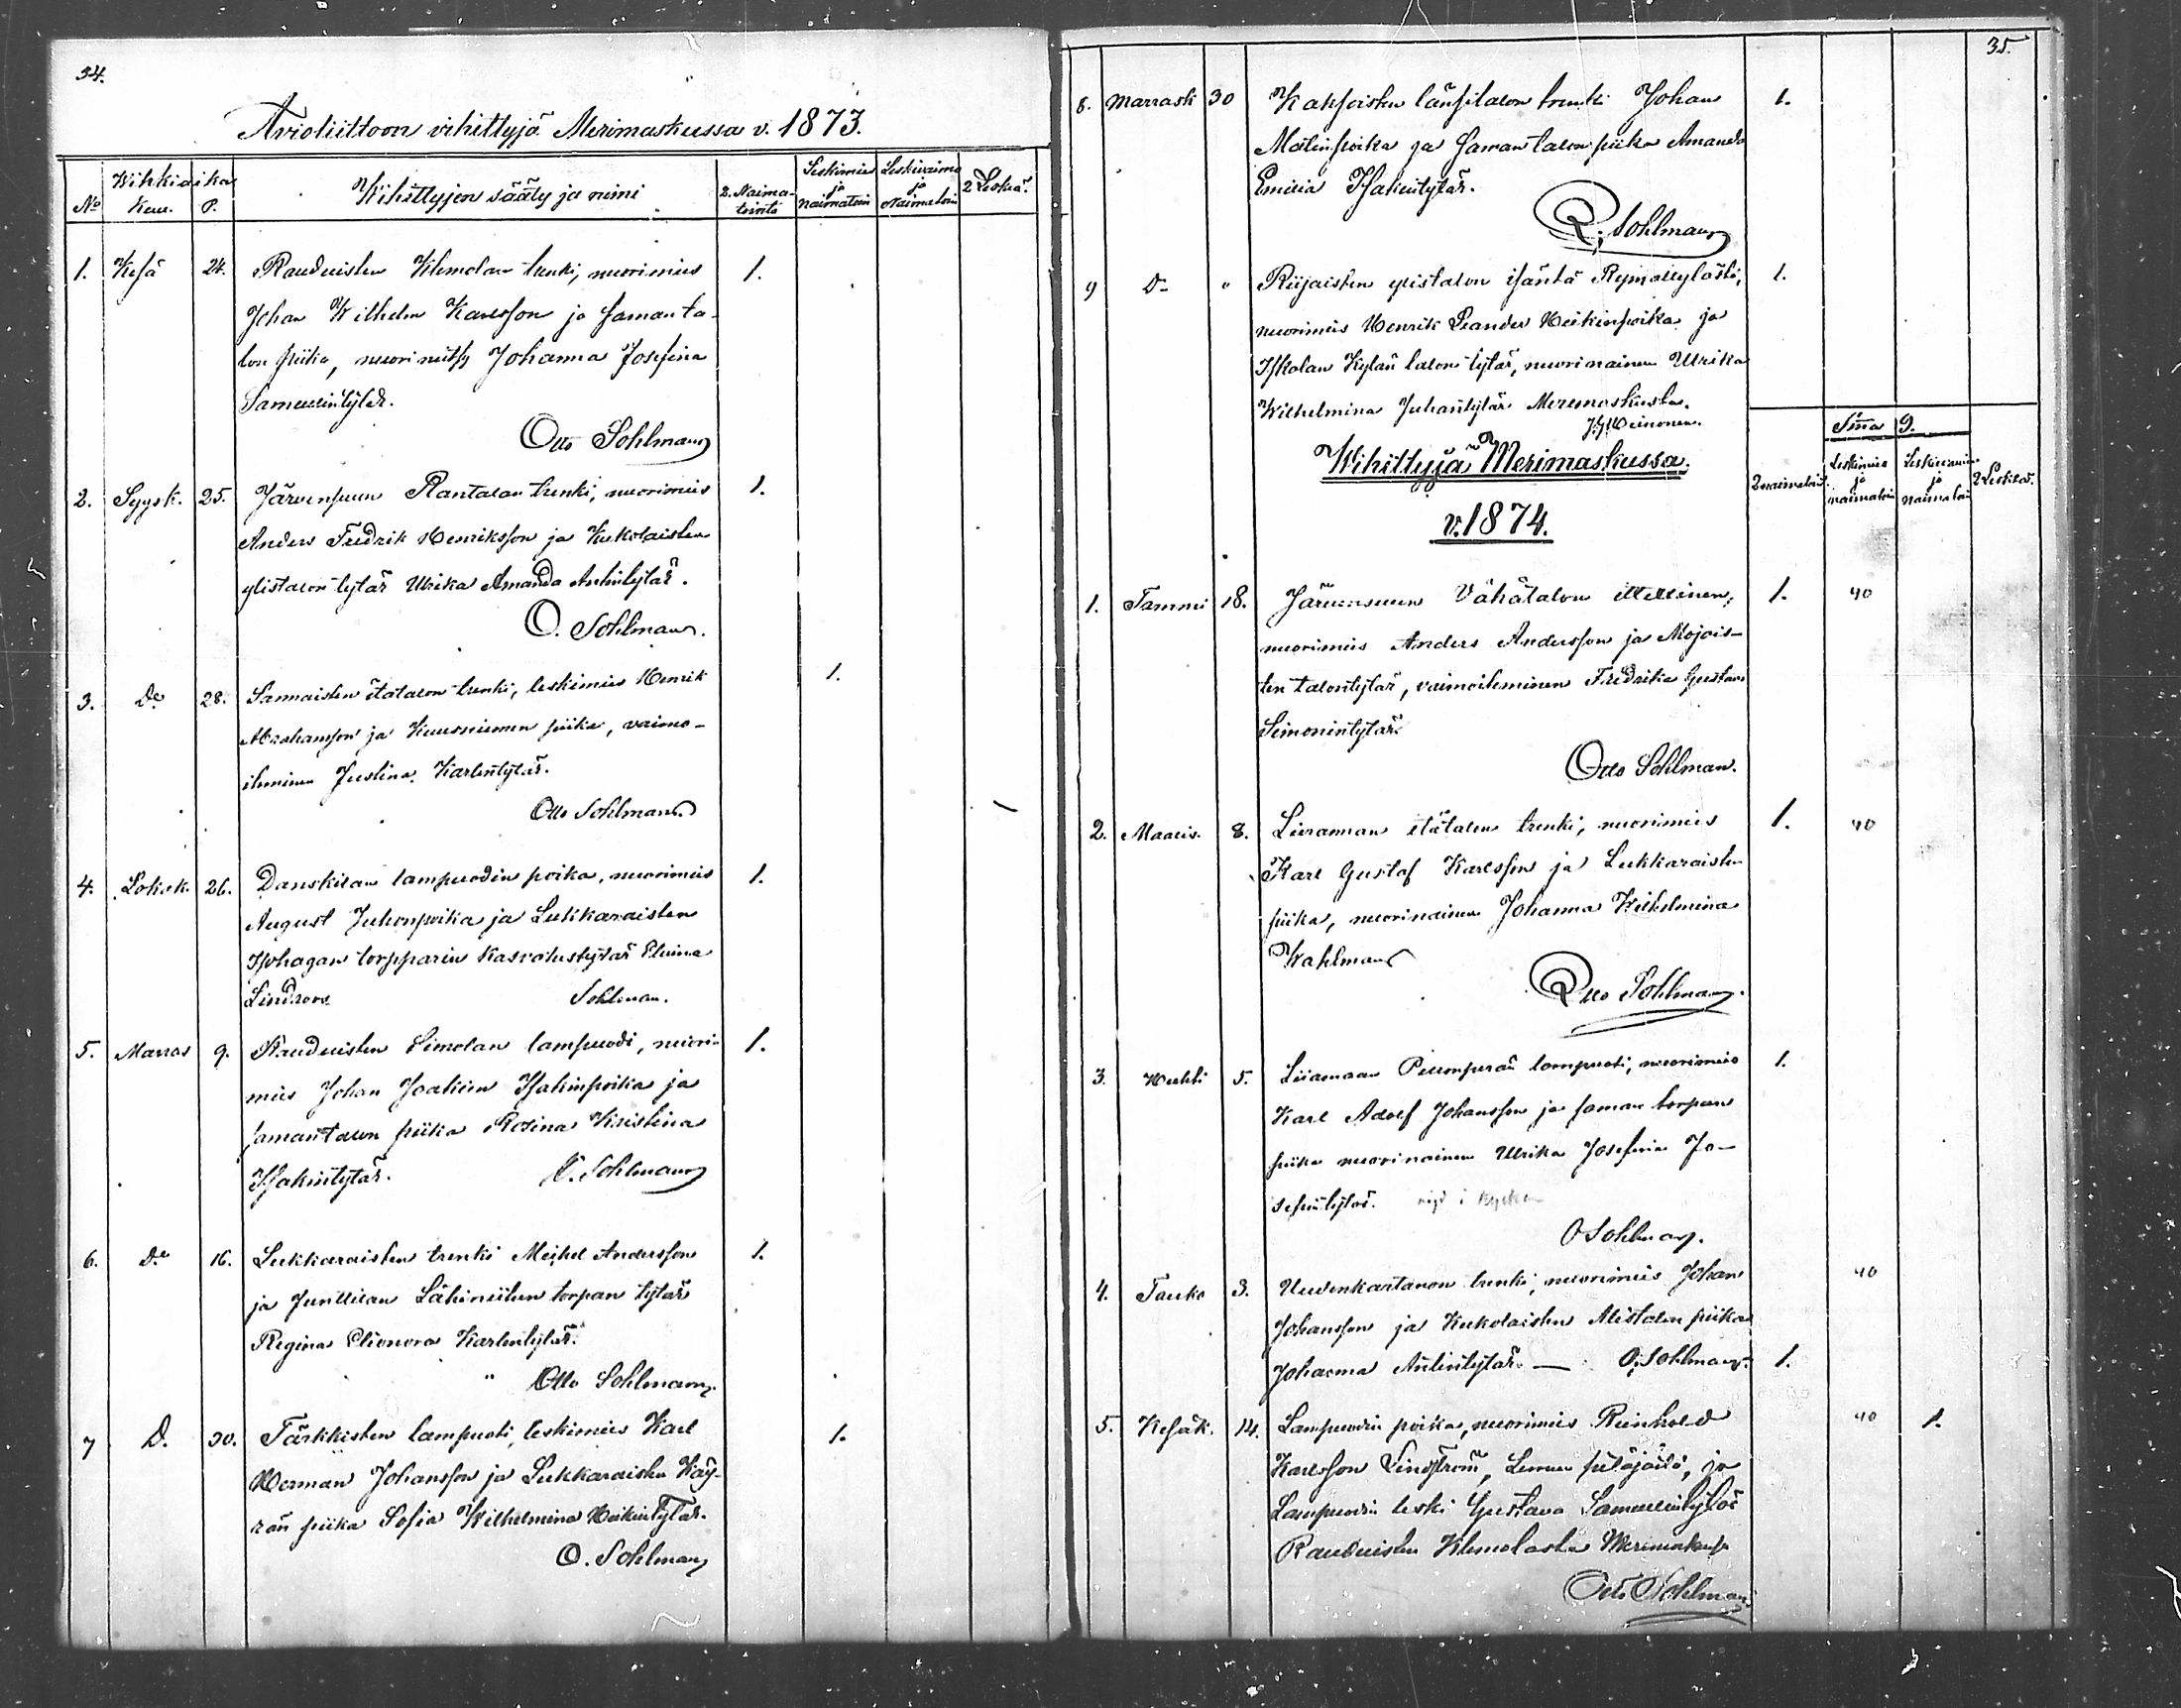 34.
Avioliittoon vihittyjä Merimaskussa v. 1873.
No Wihkiaika Kuu. P. Wihittyjen sääty ja nimi 2. Naima- tointa Leskimies ja naimatoin Leskivaimo ja Naimatoin 2 Leskiä.
1. Kesä 24. Rauduisten Klemolan trenki, nuorimies 1.
Johan Wilhelm Karlsson ja saman ta-
lon piika, nuori neitsy Johanna Josefina
Samuelintytär.
Otto Sohlman
2. Syysk. 25. Järvensuun Rantalan trenki, nuorimies 1.
Anders Fredrik Henriksson ja Kukolaisten
ylistalon tytär Ulrika Amanda Antintytär.
O. Sohlman.
3. Do 28. Sannaisten itätalon trenki, leskimies Henrik 1.
Abrahamson ja Kuusniemen piika, vaimo-
ihminen Justina Karlintytär.
Otto Sohlman
4. Lokak. 26. Danskilan lampuodin poika, nuorimies 1.
August Juhonpoika ja Lukkaraisten
Isohagan torpparin kasvatustytär Elviina
Lindroos Sohlman.
5. Marras 9. Rauduisten Simolan lampuodi, nuori- 1.
mies Johan Joakim Isakinpoika ja
saman talon piika Rosina Kristina
Isakintytär. O. Sohlman
6. Do 16. Lukkaraisten trenki Mickel Andersson 1.
ja Juntilan Lähiniitun torpan tytär
Regina Elionora Karlintytär.
Otto Sohlman.
7 D. 30. Tärkkisten lampuoti, leskimies Karl 1.
Herman Johansson ja Lukkaraisten Käy-
rän piika Sofia Wilhelmina Heikintytär.
O. Sohlman
35.
8. Marrask 30 Kaksoisten länsitalon trenki Johan 1.
Matinpoika ja saman talon piika Amanda
Emilia Isakintytär.
O. Sohlman
9 Do " Riijaisten ylistalon isäntä Rymättylästä, 1.
nuorimies Henrik Leander Heikinpoika ja
Iskolan Kylän talon tytär, nuorinainen Ulrika
Wilhelmina Juhantytär Merimaskusta.
Heinonen.
S:ma 9.
Wihittyjä Merimaskussa.
v. 1874.
2 naimatoint. Leskimies ja naimatoin Leskivaimo ja naimatoin 2 Leskiä.
1. Tammi 18. Järvensuun Vähätalon itellinen, 1. 40
nuorimies Anders Andersson ja Mojois-
ten talontytär, vaimoihminen Fredrika Gustava
Simonintytär.
Otto Sohlman.
2. Maalis. 8. Lieranman itätalon trenki, nuorimies 1. 40
Karl Gustaf Karlsson ja Lukkaraisten
piika, nuorinainen Johanna Wilhelmina
Wahlman
Otto Sohlman.
3. Huhti 5. Liiamaan lampuoti, nuorimies 1.
Karl Adolf Johansson ja saman torpan
piika nuorinainen Ulrika Josefina Jo-
sepintytär.
O Sohlman.
4. Touko 3. Uudenkartanon trenki, nuorimies Johan 40
Johansson ja Kukolaisten Alistalon piika
Johanna Antintytär. — O. Sohlman. 1.
5. Kesäk. 14. Lampuodin poika, nuorimies Reinhold 40 1.
Karlsson Lindström, Lemun pitäjästä, ja
Lampuodin leski Gustava Samuelintytär
Rauduisten Klemolasta Merimaskusta
Otto Sohlman